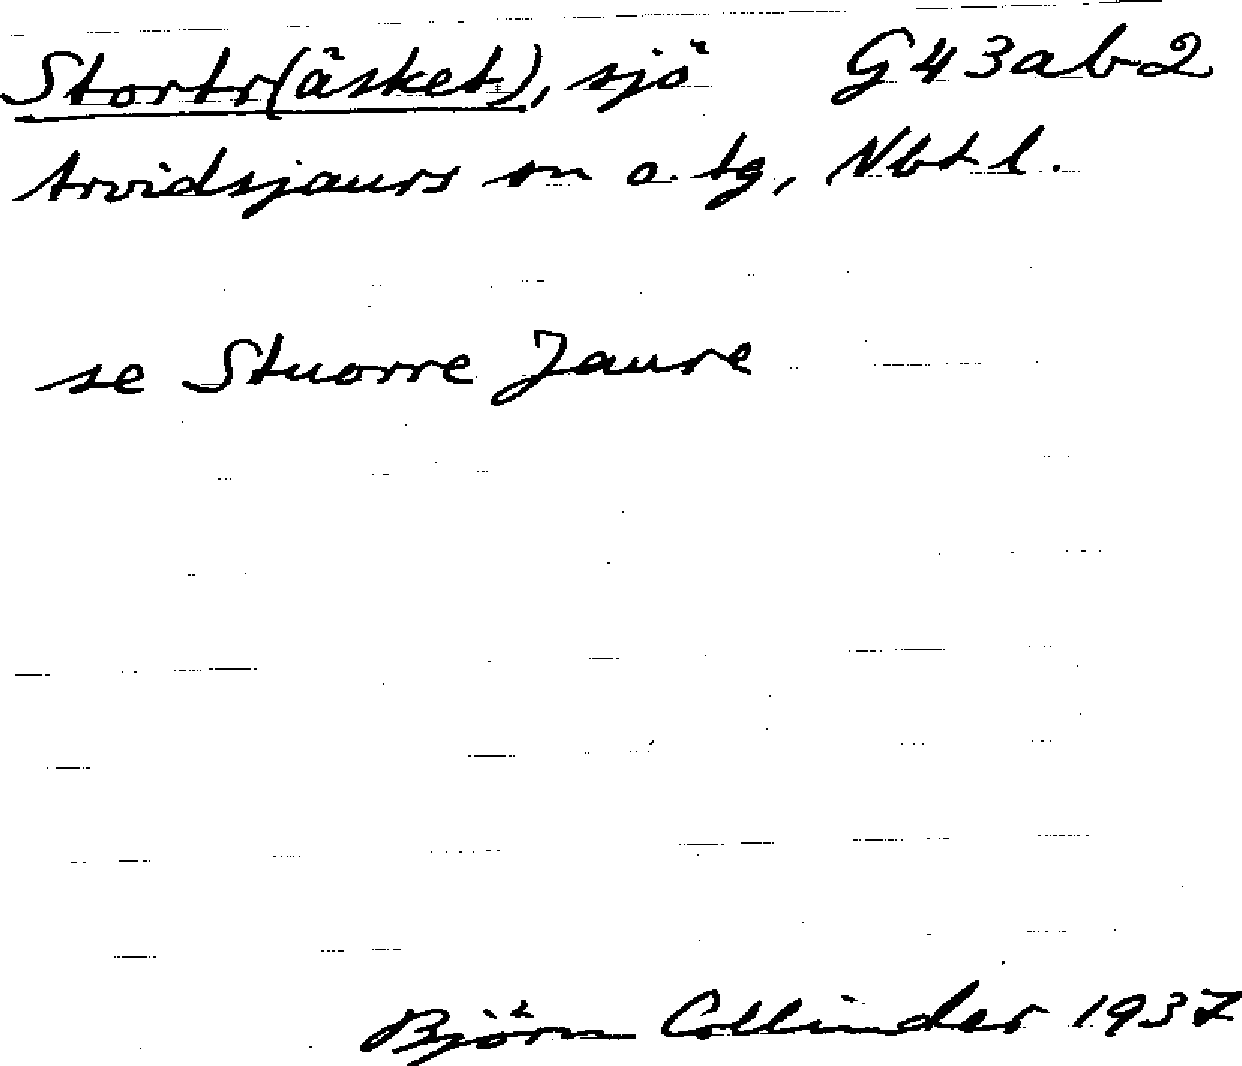 Stortr(äsket), sjö G43ab2
Arvidsjaurs sn o. tg, Nbtl.
se Stuorre Jaure
Björn Collinder 1937